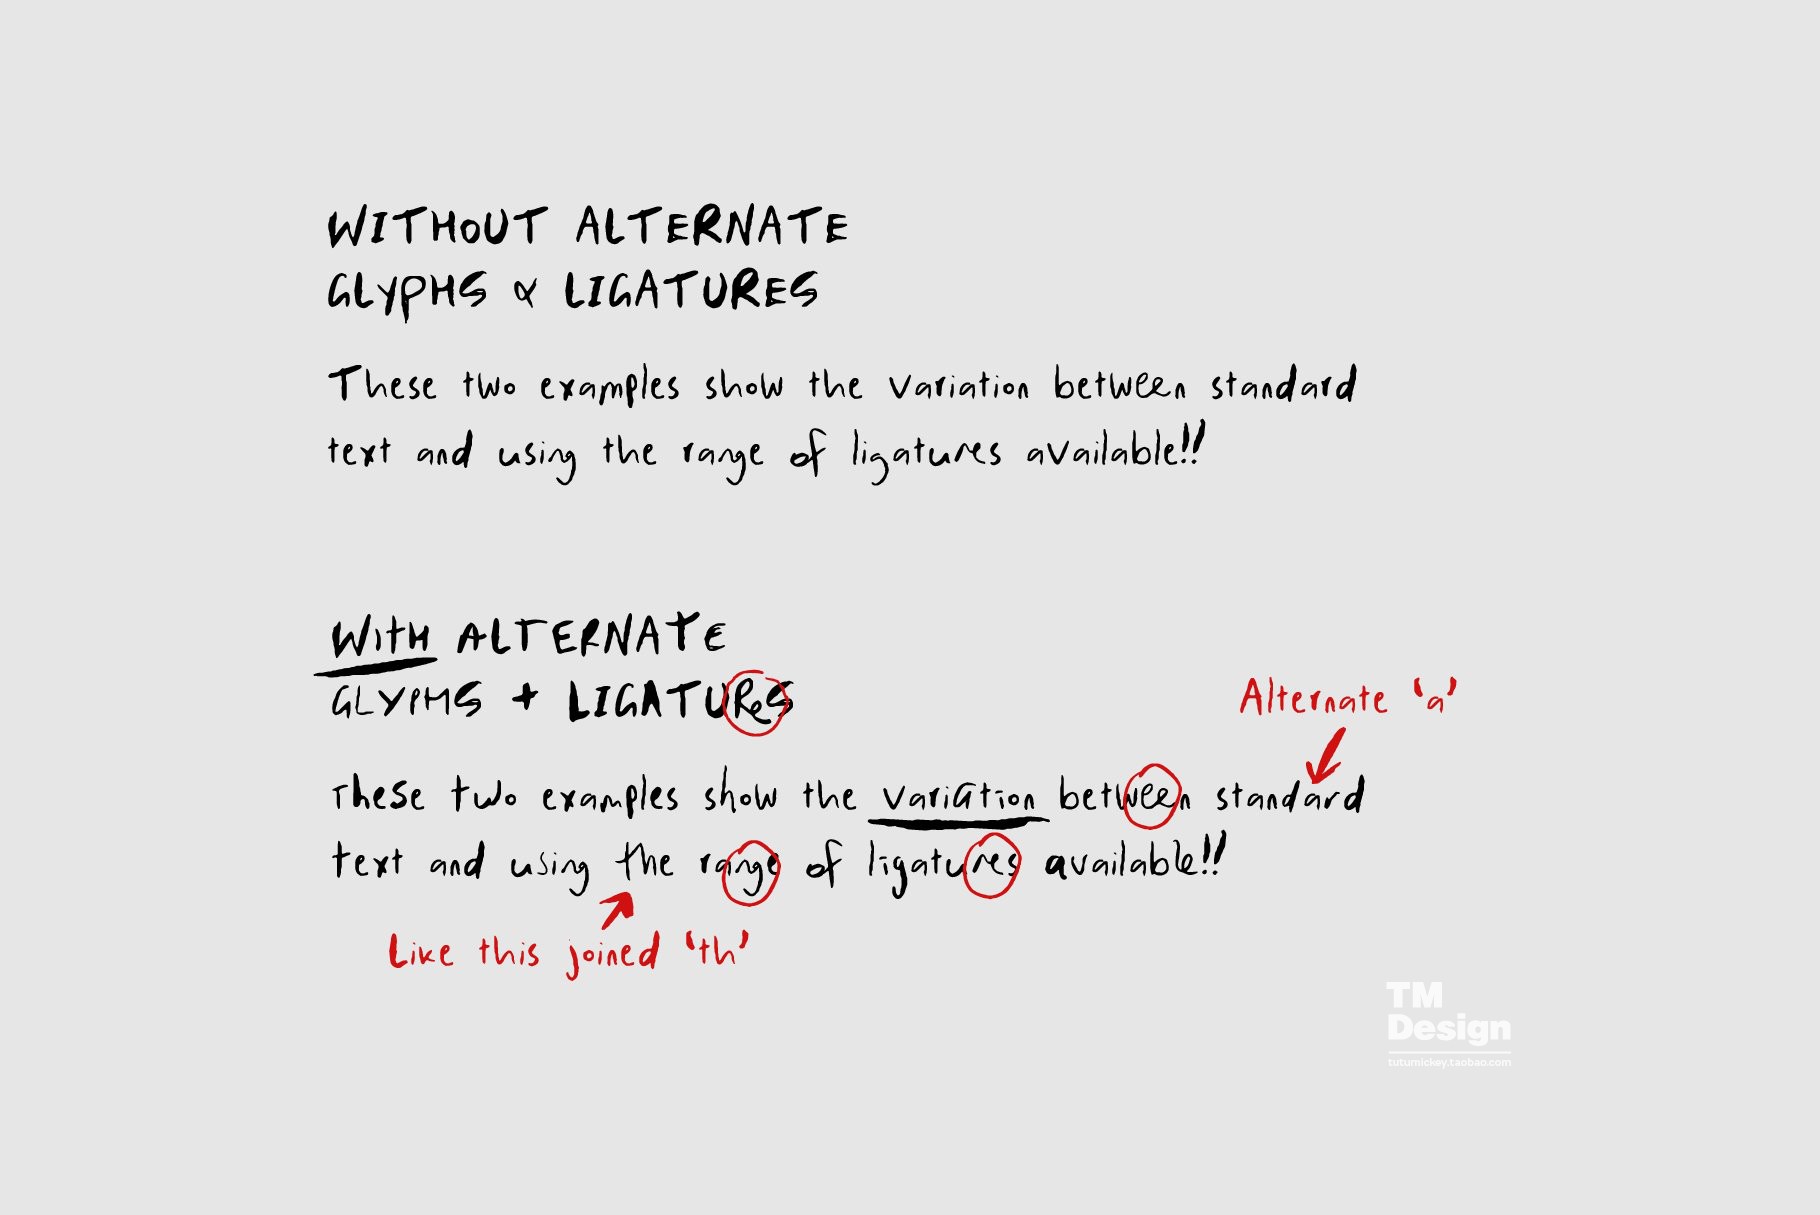 WITHOUT ALTERNATE
GLYPHS & LIGATURES
These two examples show the variation between standard
text and using the range of ligatures available!!
WITH ALTERNATE
GLYPHS + LIGATUReS
Alternate ‘a’
These two examples show the variation between standard
text and using the range of ligatures available!!
Like this joined ‘th’
TM
Design
tutumickey.taobao.com